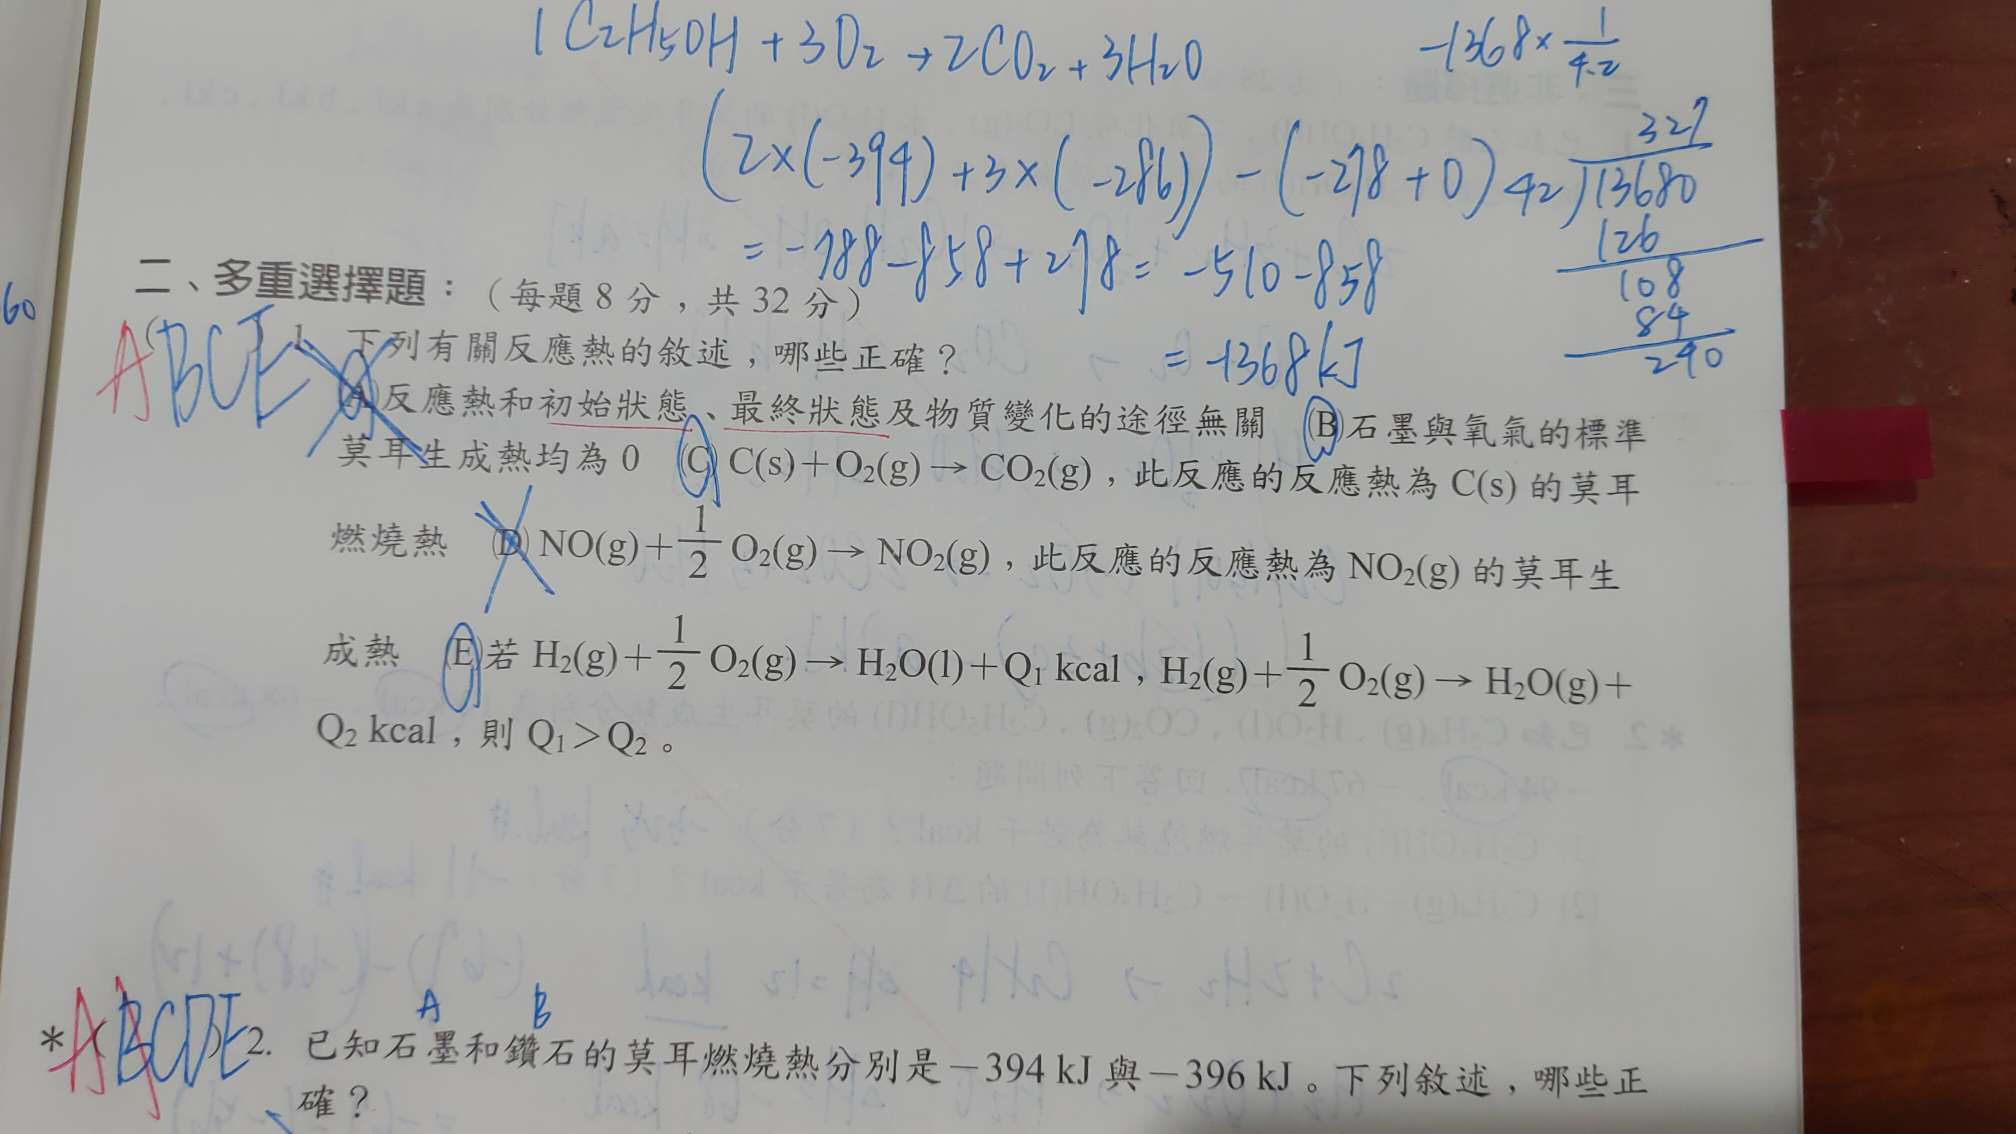 1C2H5OH + 3O2 → 2CO2 + 3H2O
-1368 × 1/4.2
(2×(-394) + 3×(-286)) - (-278 + 0)
= -788 - 858 + 278 = -510 - 858
= -1368 kJ
327
42)13680
126
108
84
240
60
二、多重選擇題：（每題 8 分，共 32 分）
ABCE
1. 下列有關反應熱的敘述，哪些正確？
(A)反應熱和初始狀態、最終狀態及物質變化的途徑無關 (B)石墨與氧氣的標準
莫耳生成熱均為 0 (C) C(s)+O2(g)→ CO2(g)，此反應的反應熱為 C(s) 的莫耳
燃燒熱 (D) NO(g)+1/2 O2(g)→ NO2(g)，此反應的反應熱為 NO2(g) 的莫耳生
成熱 (E)若 H2(g)+1/2 O2(g)→ H2O(l)+Q1 kcal，H2(g)+1/2 O2(g)→ H2O(g)+
Q2 kcal，則 Q1＞Q2。
A B
＊ ABCDE 2. 已知石墨和鑽石的莫耳燃燒熱分別是－394 kJ 與－396 kJ。下列敘述，哪些正
確？